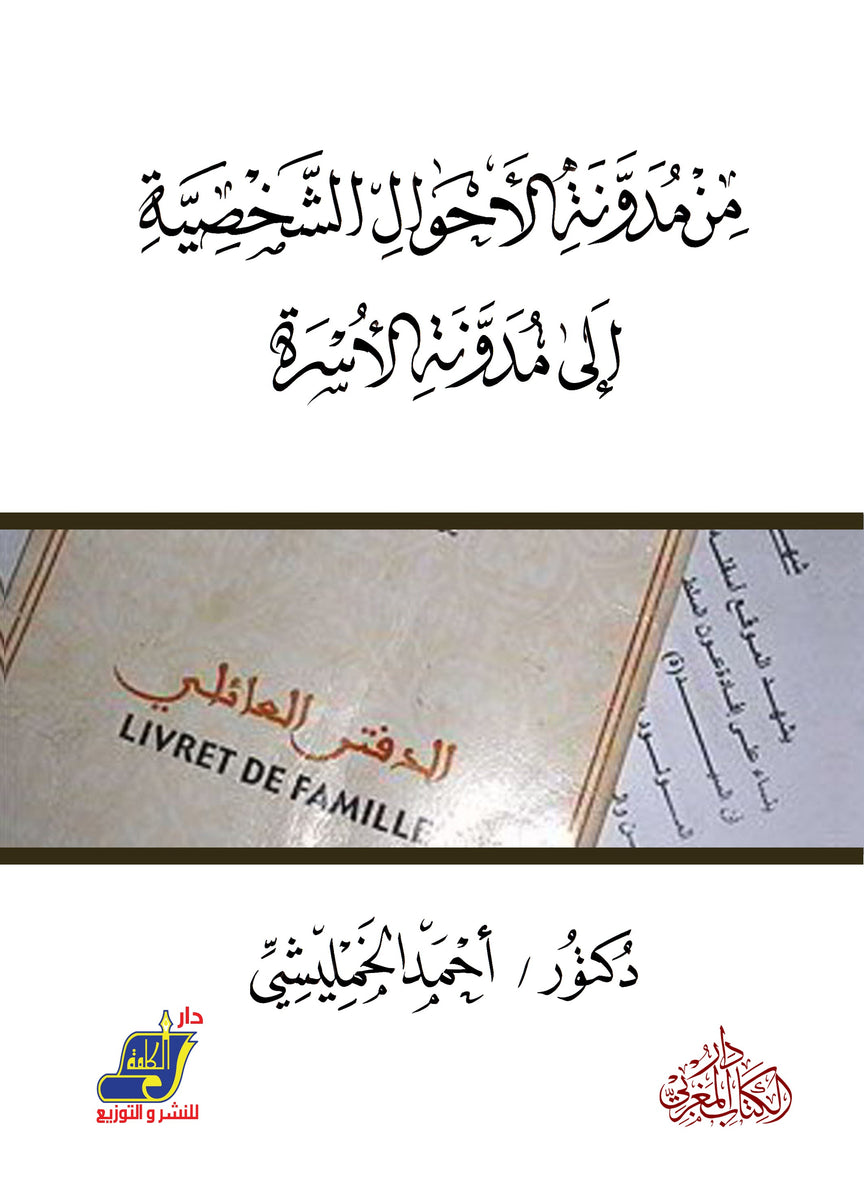 مِنْ مُدَوَّنَةِ الأَحْوَالِ الشَّخْصِيَّةِ
إِلَى مُدَوَّنَةِ الأُسْرَةِ
الدفتر العائلي
LIVRET DE FAMILLE
يشهد الموقع أسفله
دُكتُورُ / أَحْمَدُ الخَمْلِيشِيِّ
دار
الكلمة
للنشر و التوزيع
دار
الكتاب المغربي